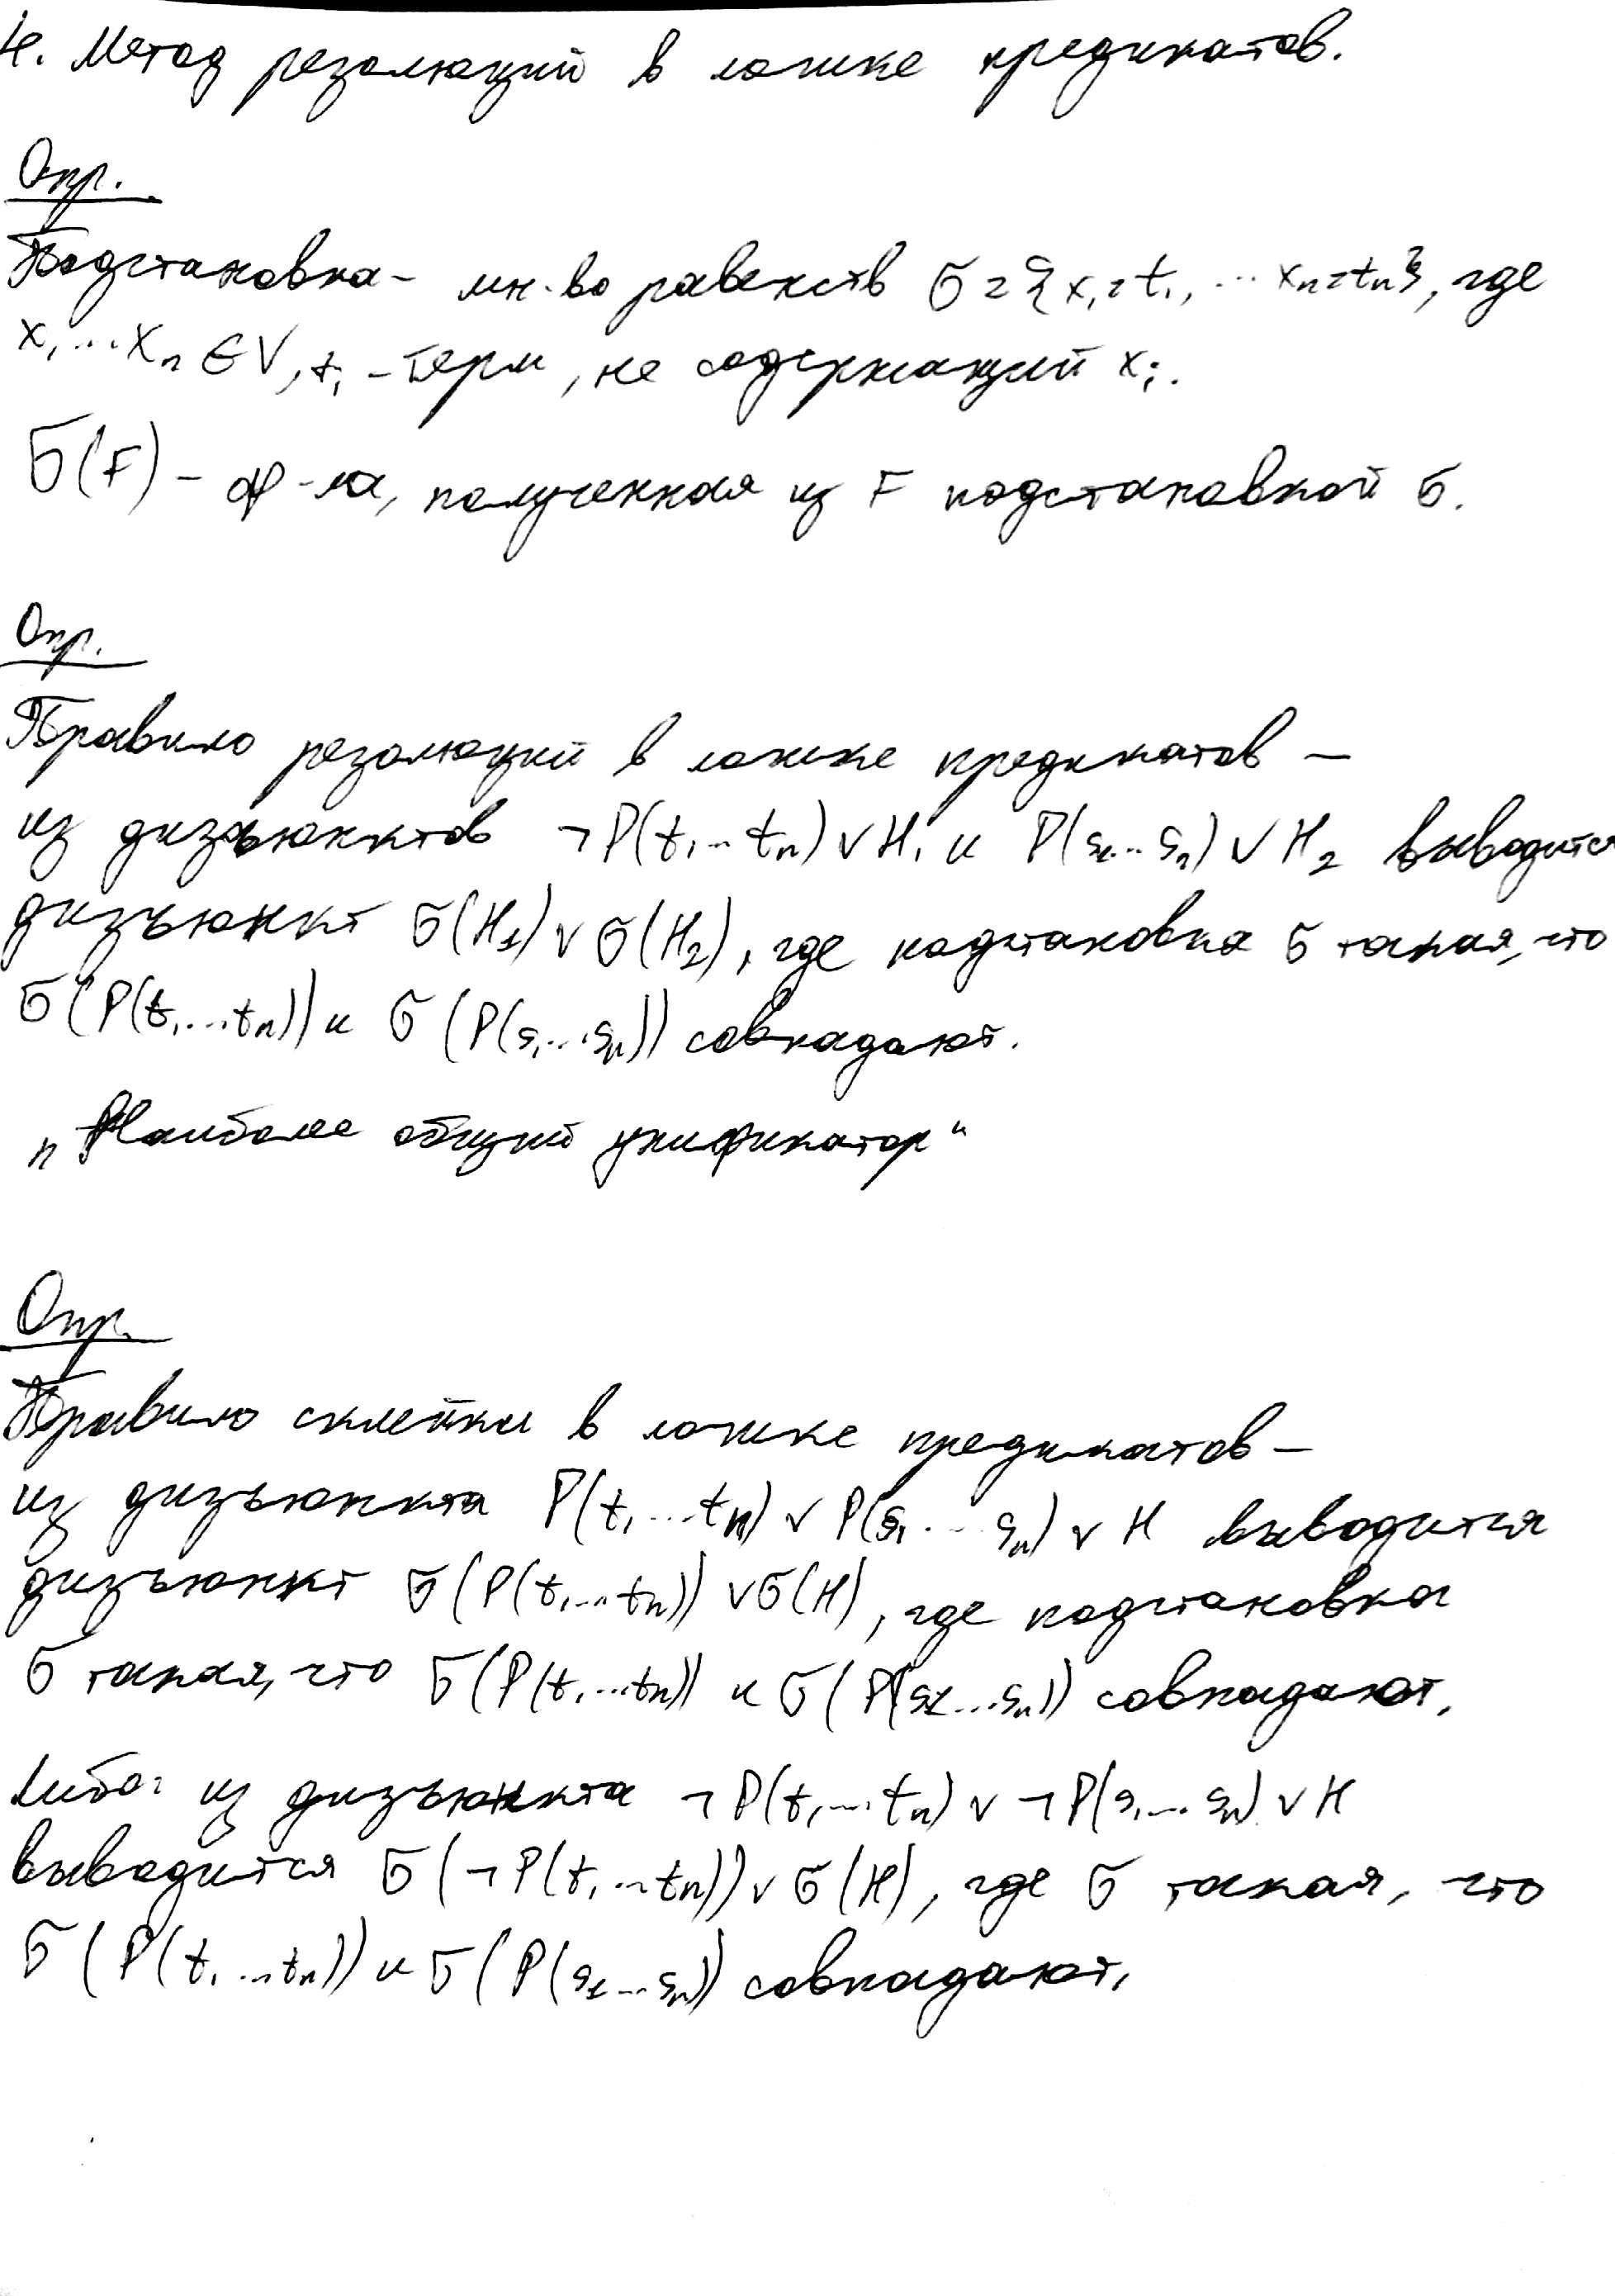 4. Метод резолюций в логике предикатов.
Опр.
Подстановка - мн-во равенств σ = {x₁=t₁, ... xₙ=tₙ}, где
x₁...xₙ ∈ V, tᵢ - терм, не содержащий xᵢ.
σ(F) - ф-ла, полученная из F подстановкой σ.
Опр.
Правило резолюций в логике предикатов —
из дизъюнктов ¬P(t₁...tₙ) ∨ H₁ и P(s₁...sₙ) ∨ H₂ выводится
дизъюнкт σ(H₁) ∨ σ(H₂), где подстановка σ такая, что
σ(P(t₁,...tₙ)) и σ(P(s₁...sₙ)) совпадают.
„Наиболее общий унификатор“
Опр.
Правило склейки в логике предикатов —
из дизъюнкта P(t₁,...tₙ) ∨ P(s₁...sₙ) ∨ H выводится
дизъюнкт σ(P(t₁,...tₙ)) ∨ σ(H), где подстановка
σ такая, что σ(P(t₁,...tₙ)) и σ(P(s₁...sₙ)) совпадают,
либо: из дизъюнкта ¬P(t₁,...tₙ) ∨ ¬P(s₁,...sₙ) ∨ H
выводится σ(¬P(t₁,...tₙ)) ∨ σ(H), где σ такая, что
σ(P(t₁,...tₙ)) и σ(P(s₁...sₙ)) совпадают.